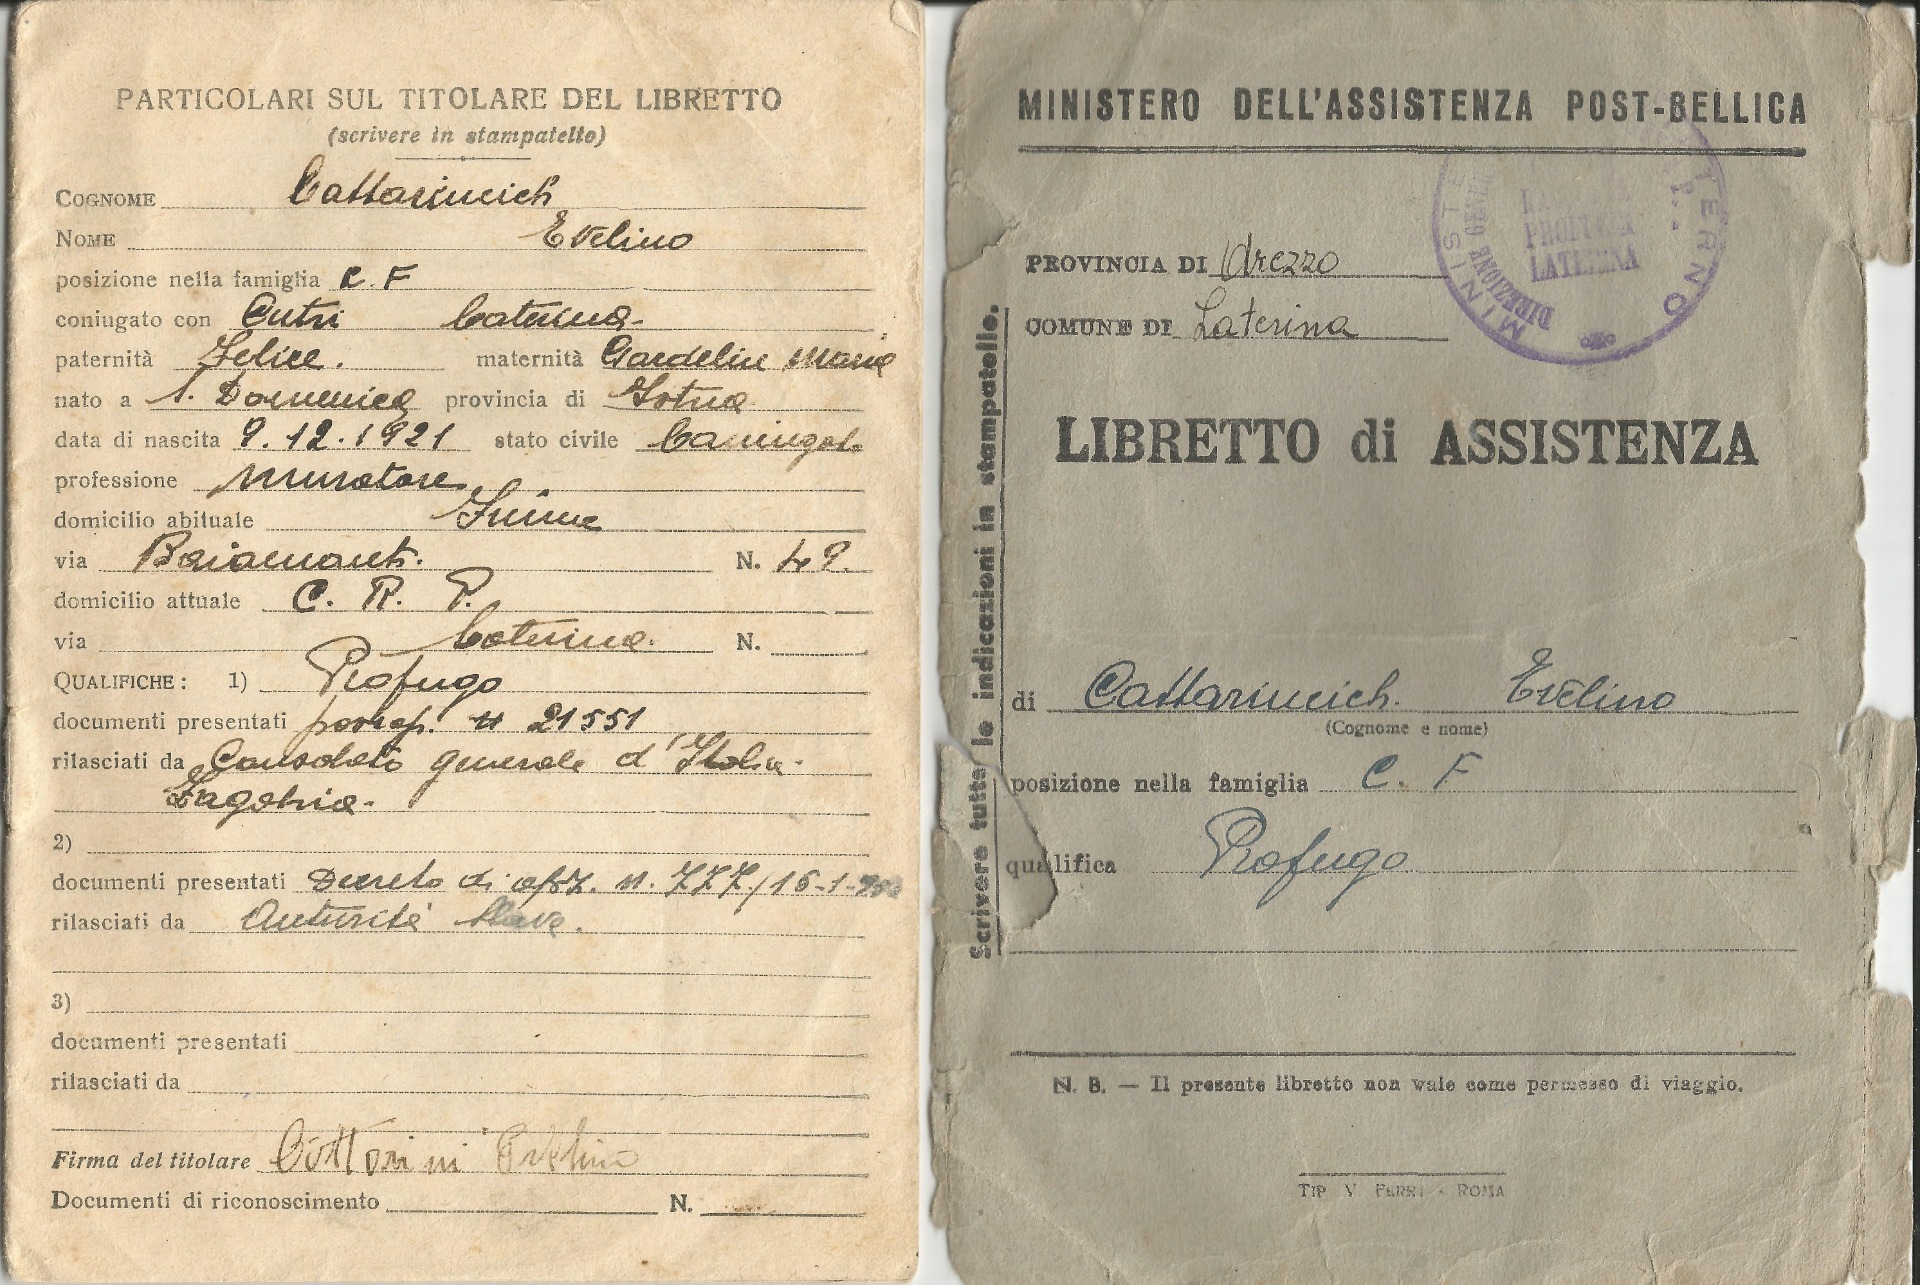 PARTICOLARI SUL TITOLARE DEL LIBRETTO
(scrivere in stampatello)
COGNOME Cattarincich
NOME Evelino
posizione nella famiglia C. F
coniugato con Cutri Caterina
paternità Felice. maternità Gardelin Maria
nato a S. Domenica provincia di
data di nascita 9.12.1921 stato civile
professione muratore
domicilio abituale Fiume
via Baiamonti. N. 49.
domicilio attuale C. R. P.
via Laterina. N.
QUALIFICHE: 1) Profugo
documenti presentati passap. n 21551
rilasciati da Consolato generale d'Italia.
Zagabria.
2)
documenti presentati Decreto di opz. n. 777/16-1-
rilasciati da Autorità slave.
3)
documenti presentati
rilasciati da
Firma del titolare Cattarini Evelino
Documenti di riconoscimento N.
MINISTERO DELL'ASSISTENZA POST-BELLICA
MINISTE TERNO
DIREZIONE GENE
PROFUGHI
LATERINA
PROVINCIA DI Arezzo
COMUNE DI Laterina
LIBRETTO di ASSISTENZA
Scrivere tutte le indicazioni in stampatello.
di Cattarincich. Evelino
(Cognome e nome)
posizione nella famiglia C. F
qualifica Profugo
N. B. — Il presente libretto non vale come permesso di viaggio.
TIP V FERRI - ROMA